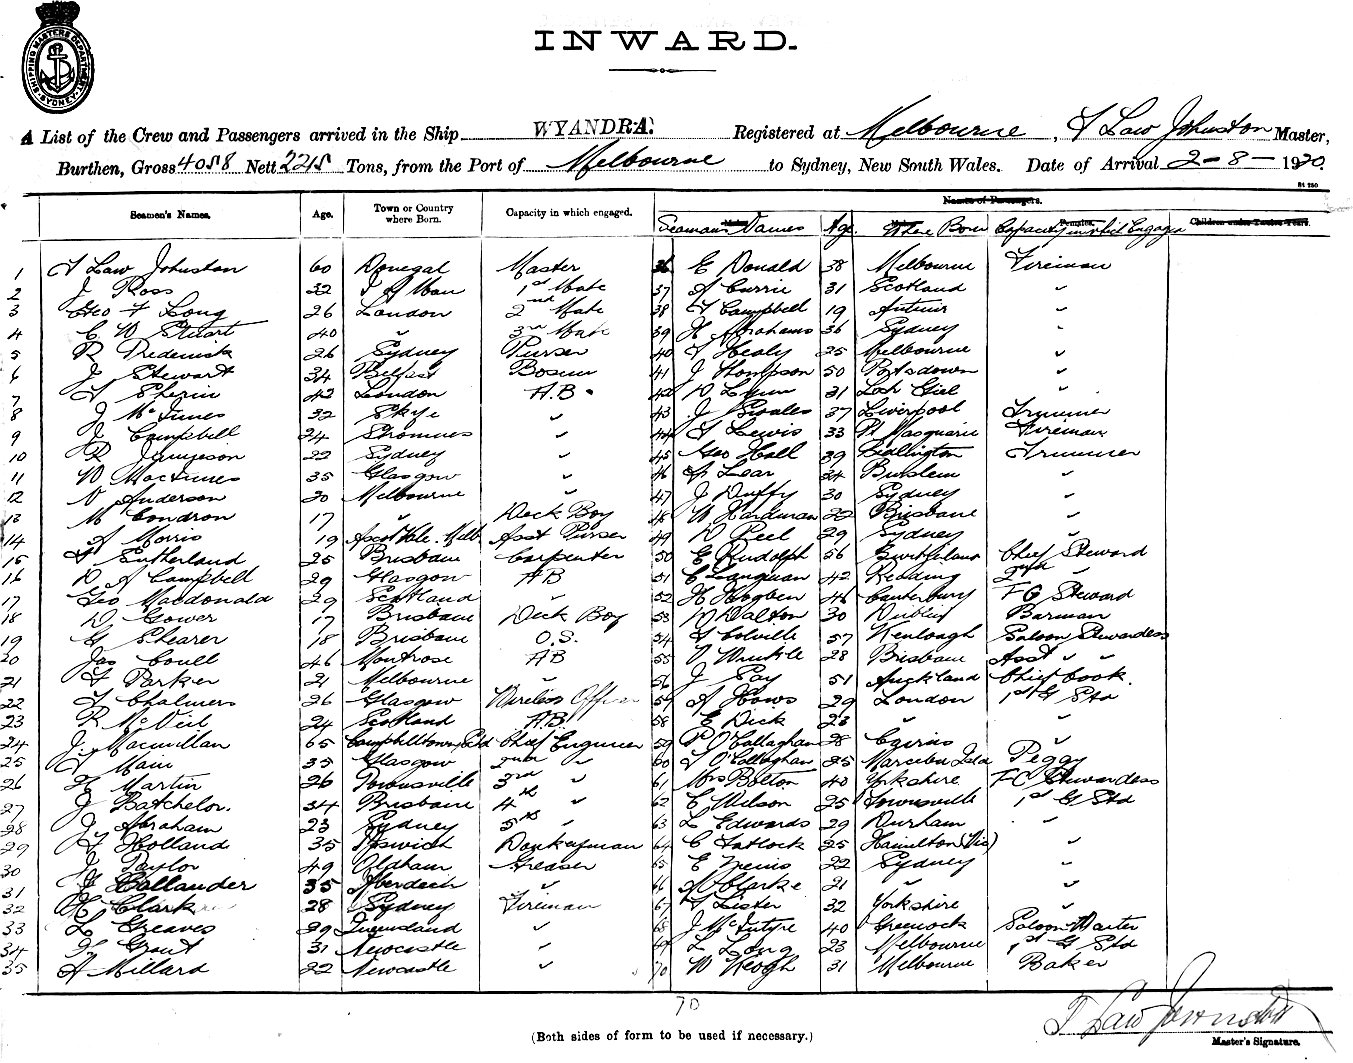 SHIPPING MASTERS DEPARTMENT. SYDNEY
INWARD.
A List of the Crew and Passengers arrived in the Ship WYANDRA. Registered at Melbourne, T Law Johnston Master,
Burthen, Gross 4058 Nett 2215 Tons, from the Port of Melbourne to Sydney, New South Wales. Date of Arrival 2-8-1920.
Seamen's Names. Age. Town or Country where Born. Capacity in which engaged. Names of Passengers.
Seaman's Names Age Where Born Capacity in which Engaged Children under Twelve Years.
1 T Law Johnston 60 Donegal Master 36 E Donald 38 Melbourne Fireman
2 J Ross 32 I of Man 1st Mate 37 A Currie 31 Scotland "
3 Geo F Long 26 London 2nd Mate 38 T Campbell 19 Antrim "
4 C W Stuart 40 " 3rd Mate 39 H Abrahams 36 Sydney "
5 R Frederick 26 Sydney Purser 40 T Healy 25 Melbourne "
6 J Stewart 34 Belfast Bosun 41 J Thompson 50 Portsdown "
7 T Sherin 42 London A.B. 42 D Lynn 31 Loch "
8 J McInnes 32 Skye " 43 J Swales 37 Liverpool Trimmer
9 J Campbell 24 Stromness " 44 T Lewis 33 Pt Macquarie Fireman
10 R Jamieson 22 Sydney " 45 Geo Hall 39 Bedlington Trimmer
11 W MacInnes 35 Glasgow " 46 A Lear 34 Burslem "
12 V Anderson 20 Melbourne " 47 J Duffy 30 Sydney "
13 M Condron 17 " Deck Boy 48 W Hardman 22 Brisbane "
14 A Morris 19 Ascot Vale. Melb Asst Purser 49 D Peel 29 Sydney "
15 T Sutherland 25 Brisbane Carpenter 50 E Rudolph 56 Switzerland Chief Steward
16 D A Campbell 29 Glasgow AB 51 C Langman 42 Reading 2nd "
17 Geo Macdonald 29 Scotland " 52 H Hogben 46 Canterbury FG Steward
18 D Gower 17 Brisbane Deck Boy 53 D Dalton 30 Dublin Barman
19 G Shearer 18 Brisbane O.S. 54 T Colville 57 Saloon Stewardess
20 Jas Coull 46 Montrose AB 55 V Winkle 28 Brisbane Asst " "
21 F Parker 21 Melbourne " 56 J Pay 51 Auckland Chief Cook.
22 T Chalmers 26 Glasgow Wireless Officer 57 A Haws 29 London 1st G Std
23 R McNeil 24 Scotland A.B. 58 E Dick 23 " "
24 J. Macmillan 65 Campbelltown, Scld Chief Engineer 59 P O'Callaghan 28 Cairns "
25 T Main 35 Glasgow 2nd " 60 T O'Callaghan 25 Marsden Isld Peggy
26 F Martin 26 Townsville 3rd " 61 Mrs Bolton 40 Yorkshire FC Stewardess
27 J Batchelor. 34 Brisbane 4th " 62 C Wilson 25 Townsville 1st G Std
28 J Abraham 23 Sydney 5th " 63 L Edwards 29 Durham "
29 T Holland 35 Ipswich Donkeyman 64 C Tatlock 25 Hamilton (Vic) "
30 J Taylor 49 Oldham Greaser 65 E Nevis 22 Sydney "
31 J Ballander 35 Aberdeen " 66 N Clarke 21 " "
32 H Clark 28 Sydney Fireman 67 T Lister 32 Yorkshire "
33 L Greaves 29 Queensland " 68 J McIntyre 40 Greenock Saloon Waiter
34 F Grant 31 Newcastle " 69 L Long 23 Melbourne 1st G Std
35 A Millard 22 Newcastle " 70 W Keogh 31 Melbourne Baker
70
(Both sides of form to be used if necessary.)
T Law Johnston
Master's Signature.